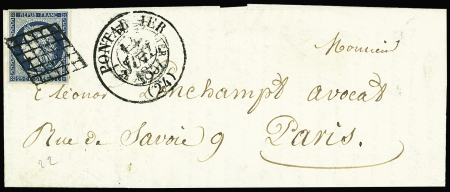 REPUB. FRANC.
PONTARLIER
(24)
Monsieur
Eléonor Enchampt avocat
Rue de Savoie 9 Paris.
22